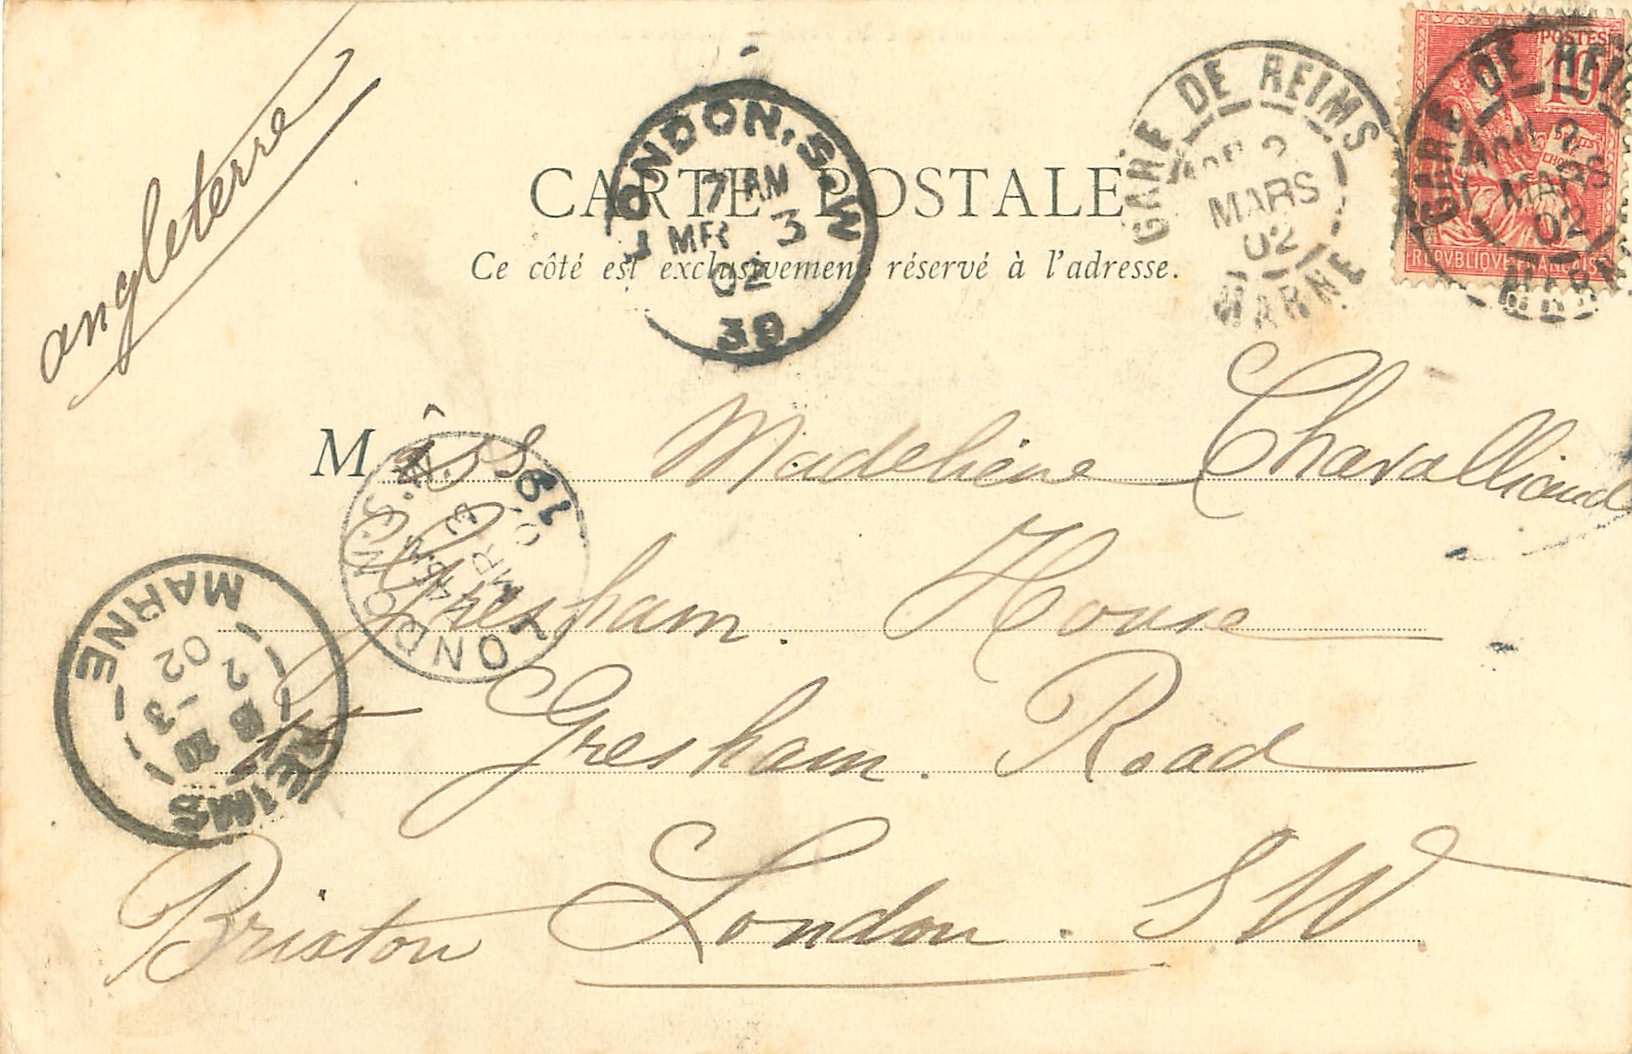 angleterre
CARTE POSTALE
Ce côté est exclusivement réservé à l'adresse.
LONDON.S.W
7 AM
MR 3
02
39
GARE DE REIMS
2
MARS
02
MARNE
POSTES
10
REPVBLIQVE FRANÇAISE
GARE DE REIMS
2
MARS
02
M iss Madeliéne Chavalliaud
Gresham. House
LONDON.S.W.
MR 3
02
19
Gresham. Road
REIMS
2 -3
02
MARNE
Brixton London. SW